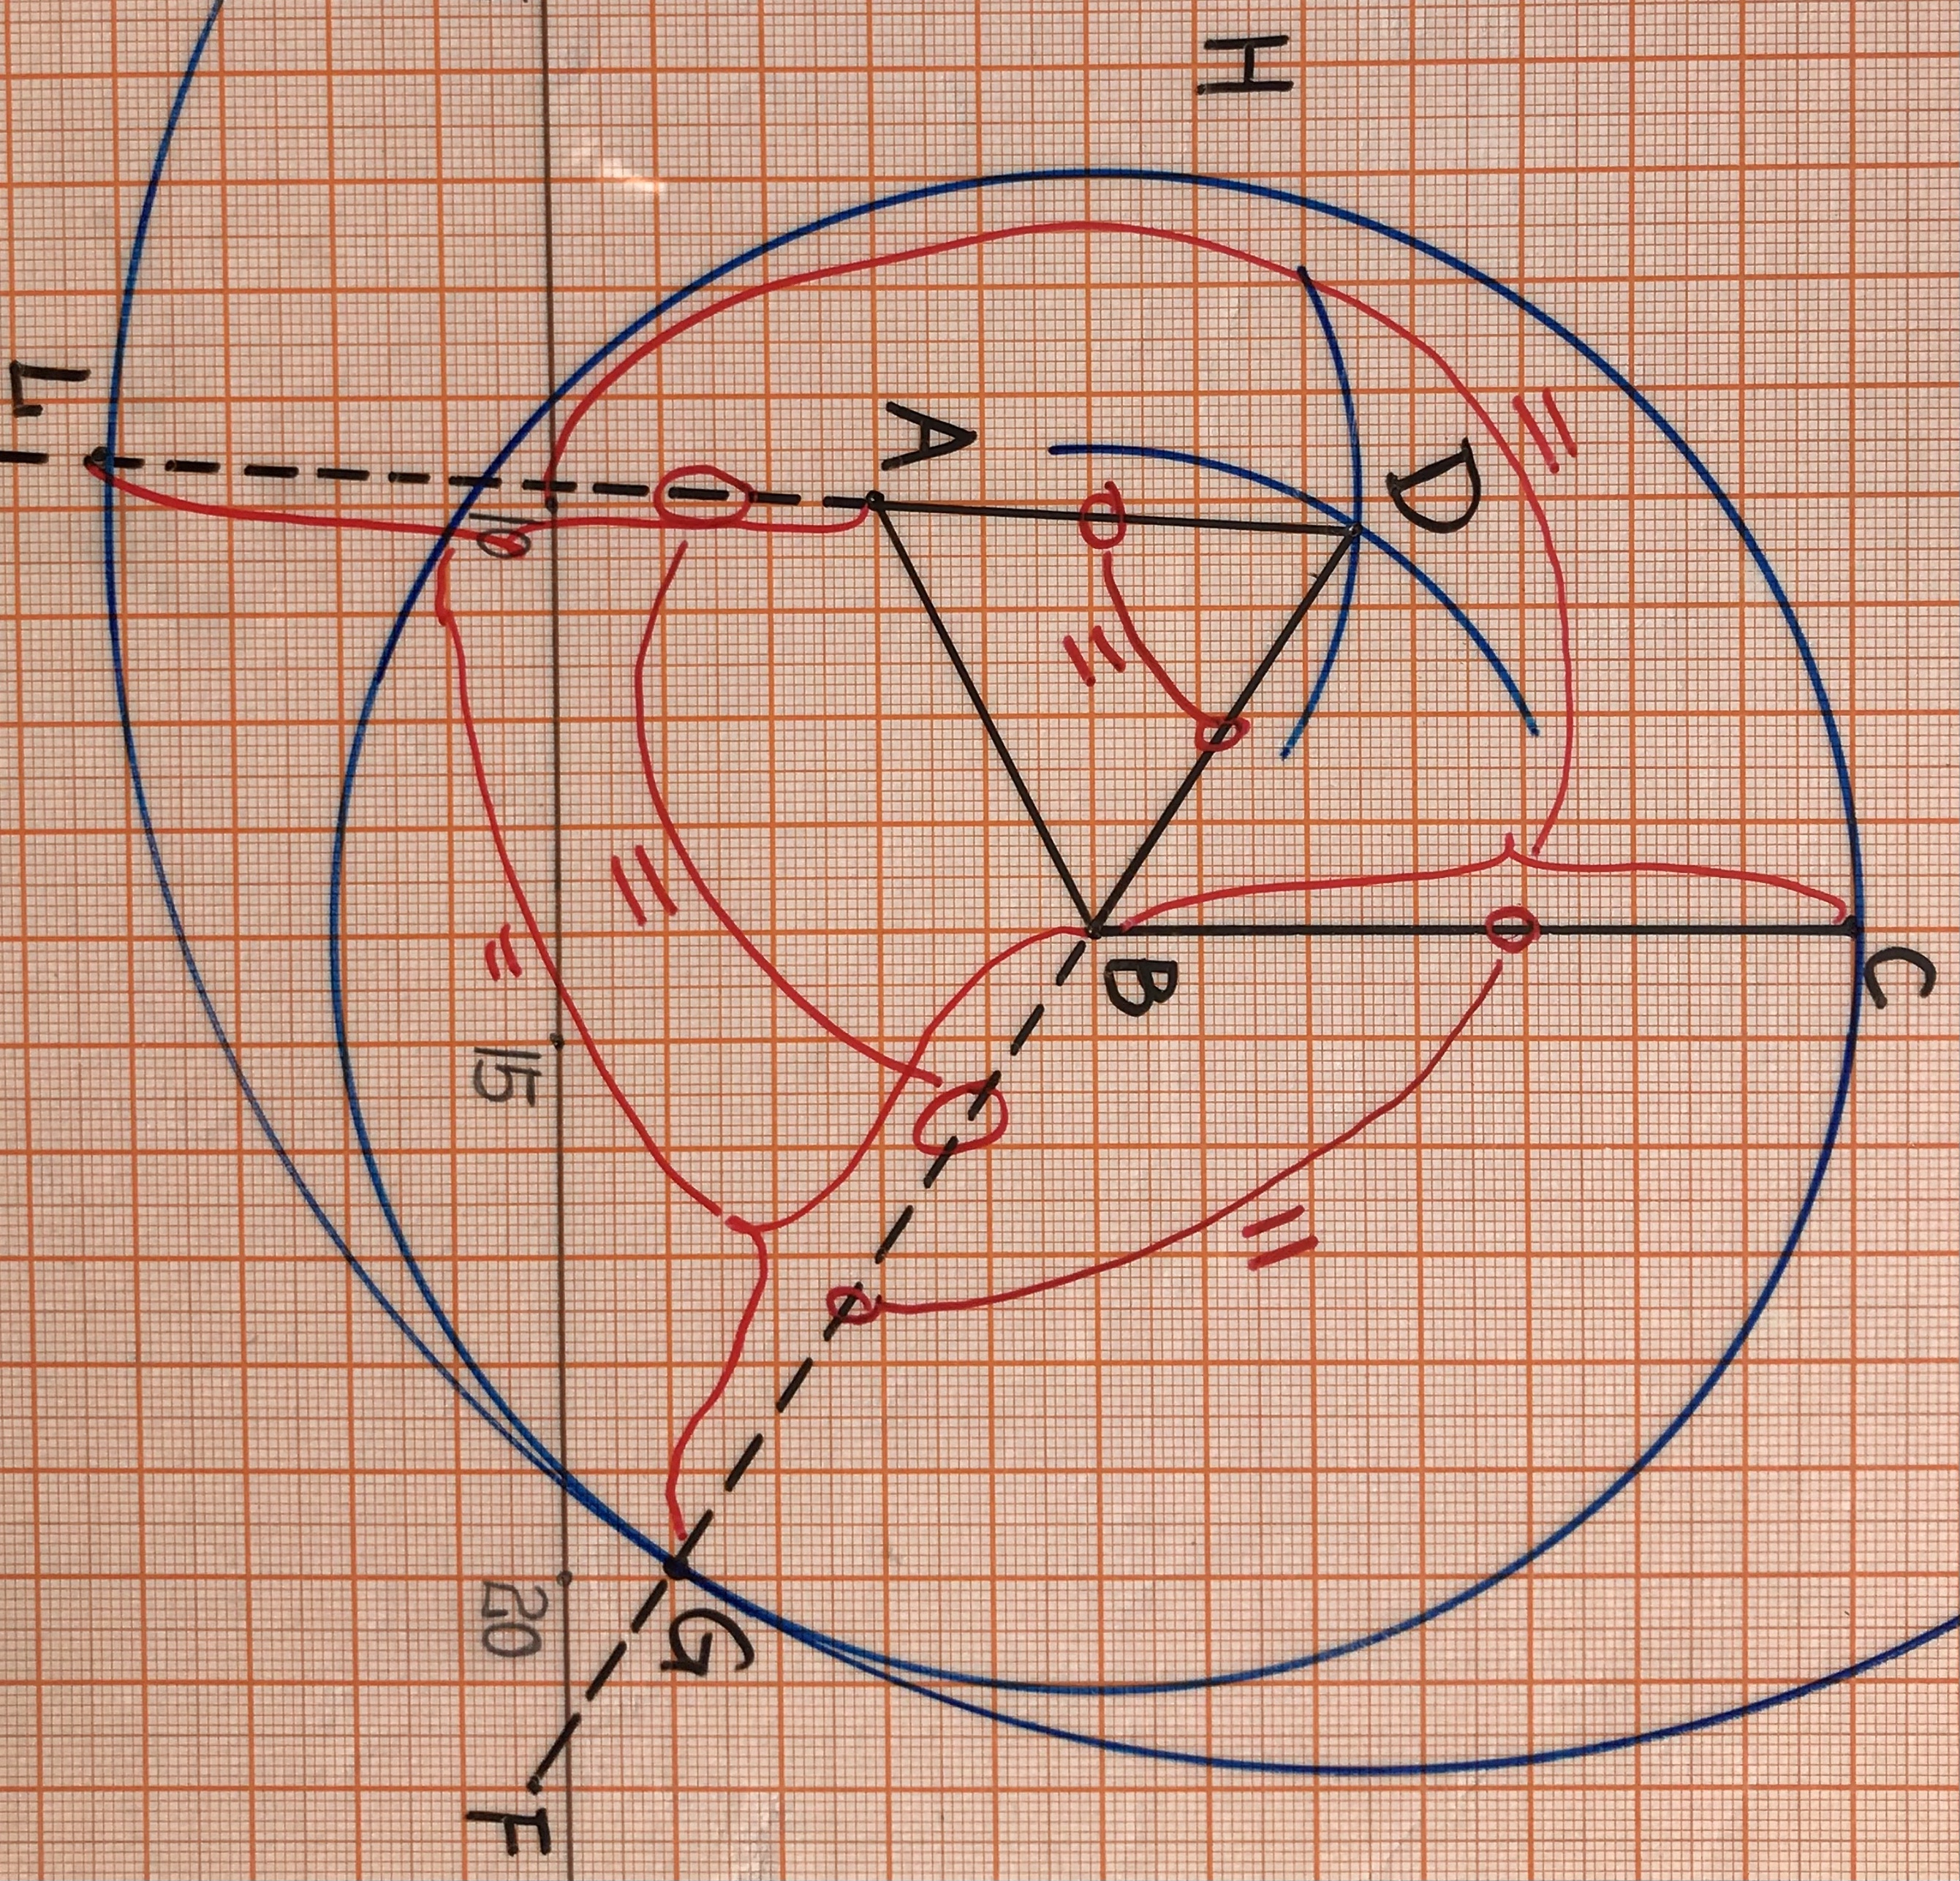 C
D
H
B
A
G
10
15
20
F
L